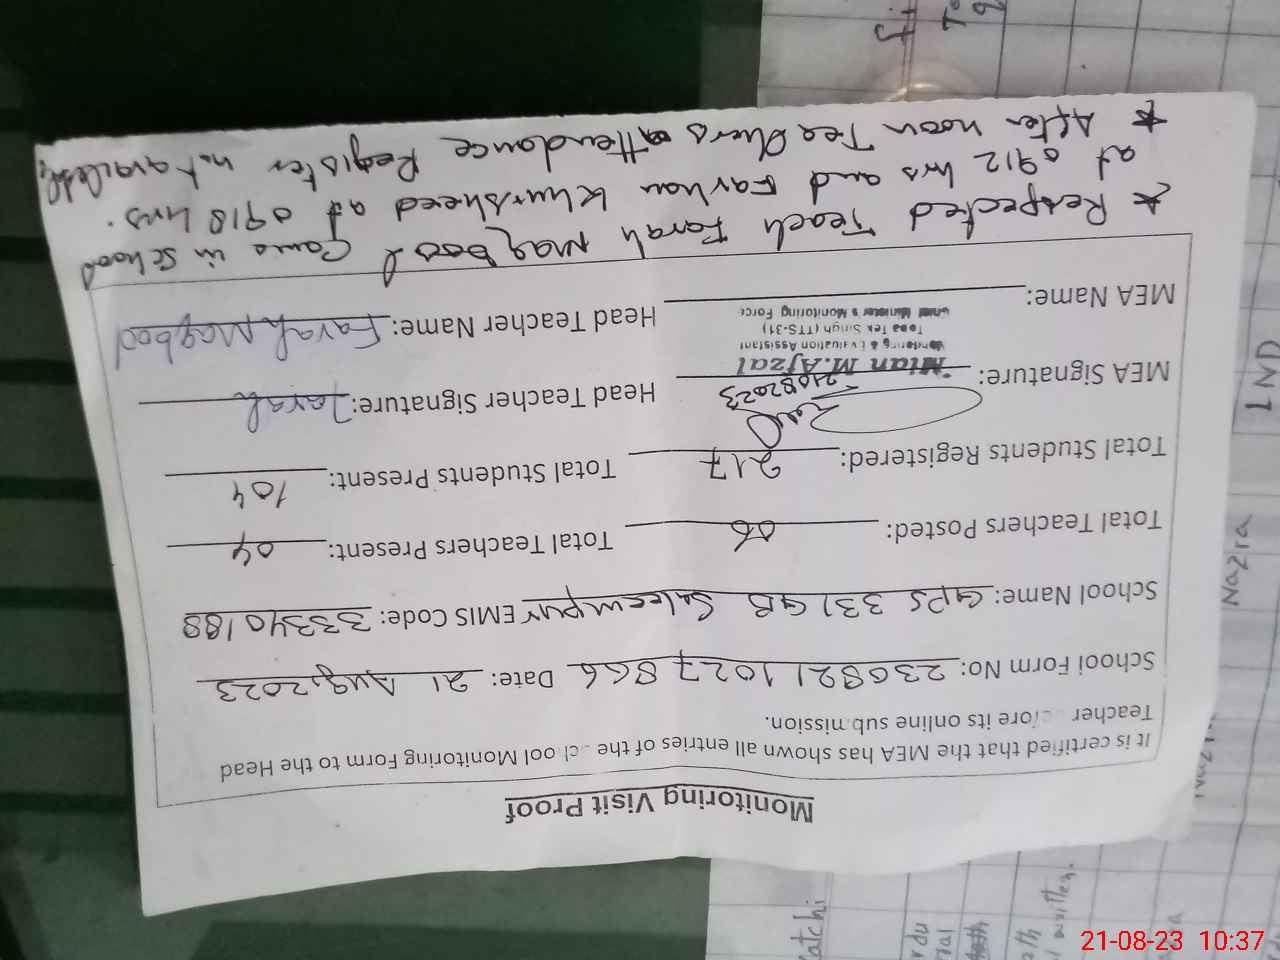 Monitoring Visit Proof
It is certified that the MEA has shown all entries of the School Monitoring Form to the Head
Teacher before its online submission.
School Form No: 230821 1027 866 Date: 21 Aug, 2023
School Name: GPS 331 GB Saleempur EMIS Code: 33340188
Total Teachers Posted: 06 Total Teachers Present: 04
Total Students Registered: 217 Total Students Present: 104
MEA Signature: 21082023 Head Teacher Signature: Farah
Mian M.Afzal
Monitoring & Evaluation Assistant
Toba Tek Singh (TTS-31)
Chief Minister's Monitoring Force
MEA Name: Head Teacher Name: Farah Maqbool
* Respected Teach Farah Maqbool Came in School
at 0912 hrs and Farhan Khursheed at 0918 hrs.
* After noon Teachers attendance Register not available
IND
Nazra
21-08-23 10:37